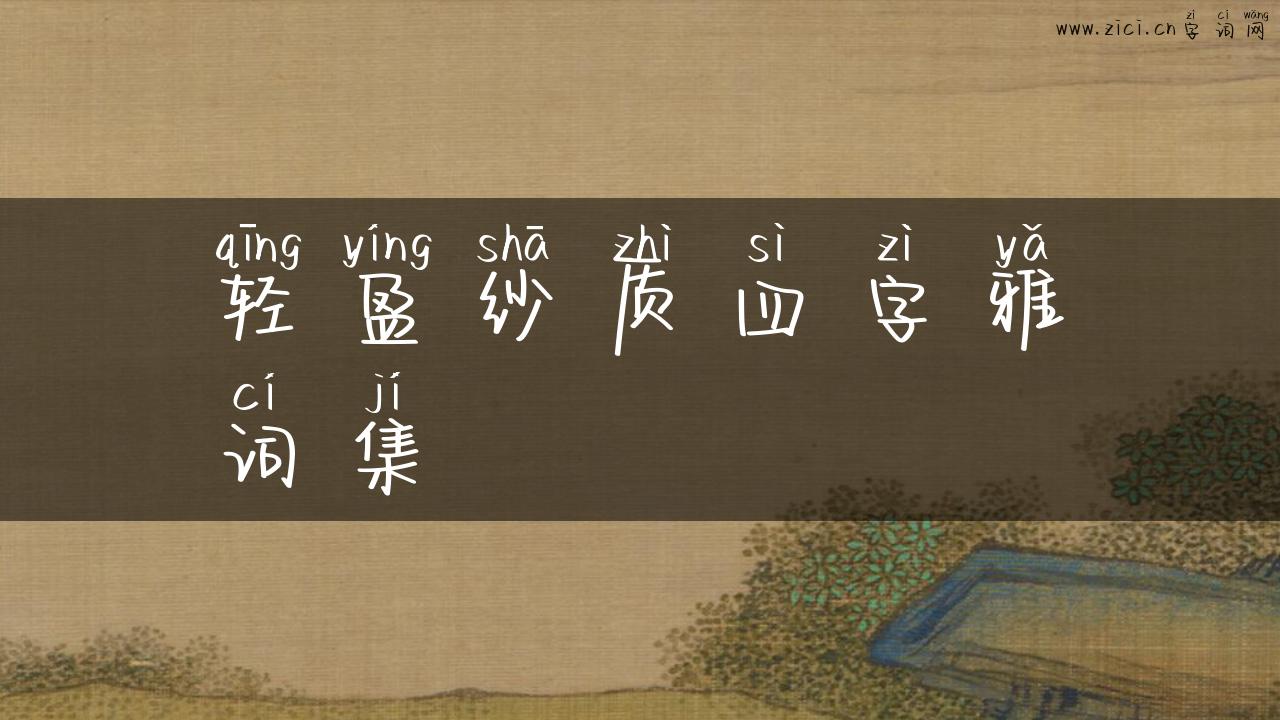 zì cí wǎng
www.zici.cn 字词网
qīng yíng shā zhì sì zì yǎ
轻盈纱质四字雅
cí jí
词集